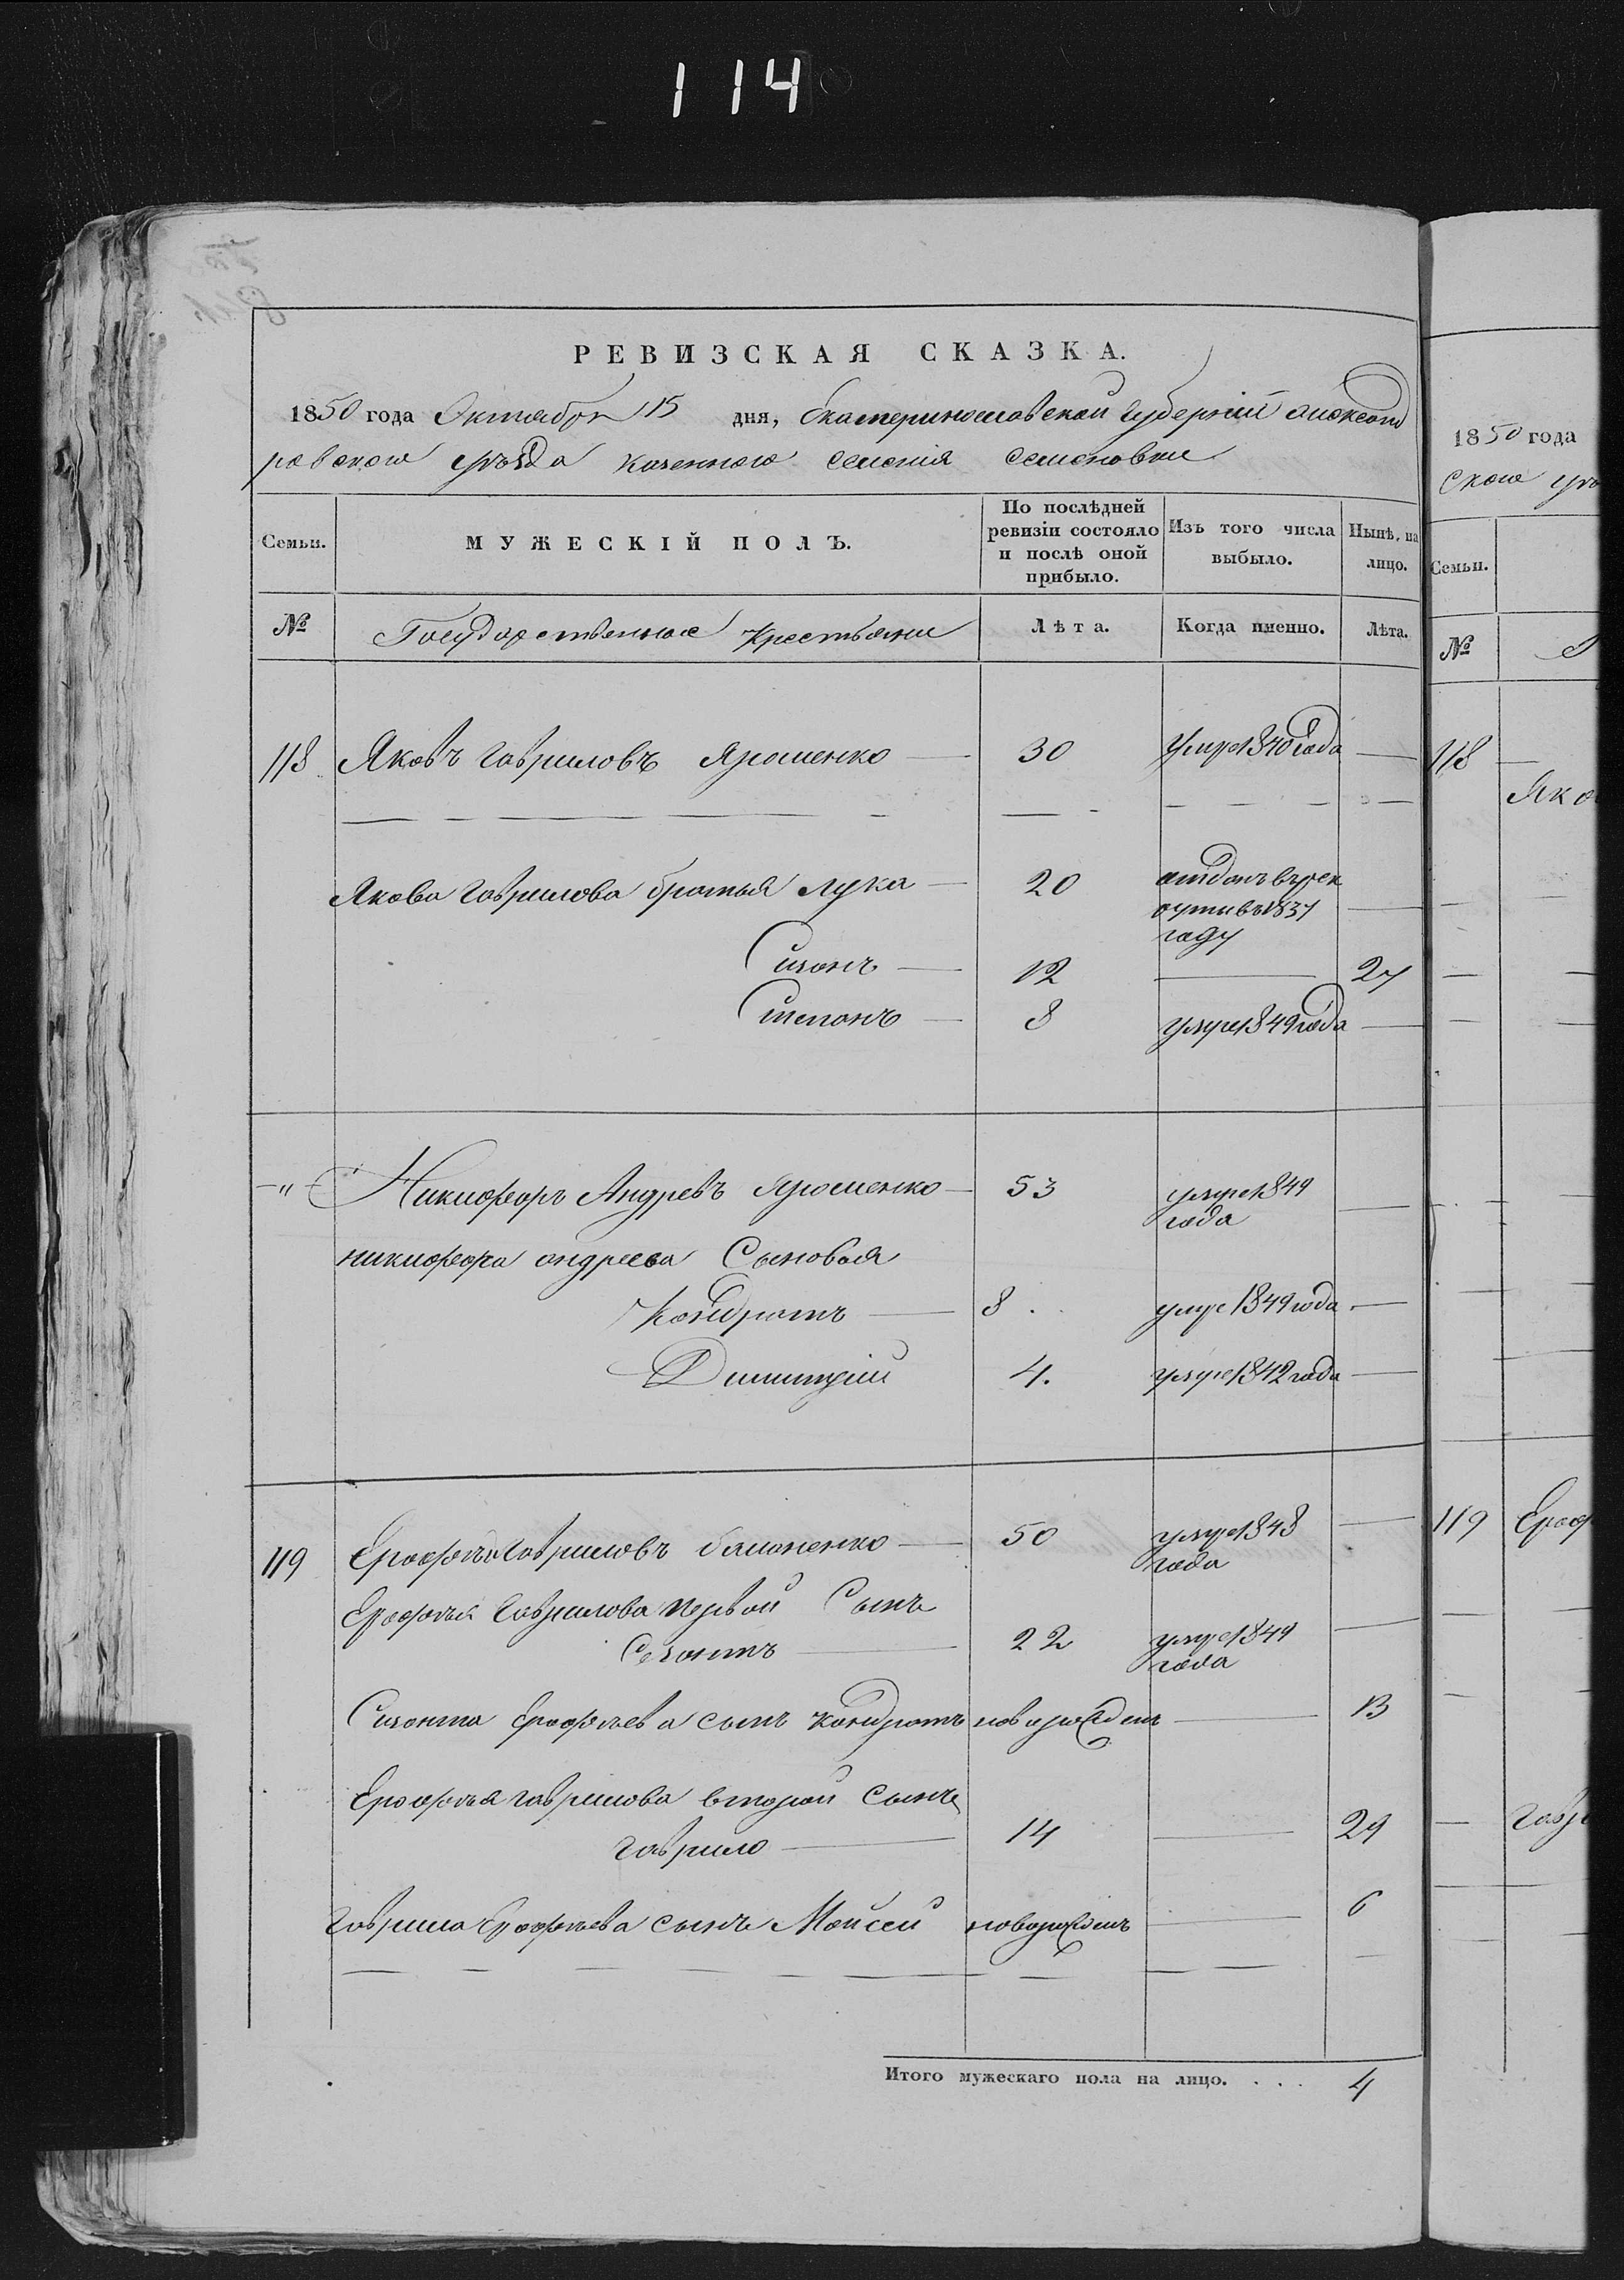 114
РЕВИЗСКАЯ СКАЗКА.
1850 года Октября 15 дня, Екатеринославской Губерніи Александ
ровскаго уезда казенного селенія Семеновки
Семьи.
МУЖЕСКІЙ ПОЛЪ.
По послѣдней ревизіи состояло и послѣ оной прибыло.
Изъ того числа выбыло.
Нынѣ, на лицо.
№ Государственные крестьяни Лѣта. Когда именно. Лѣта.
118 Яковъ Гавриловъ Ярошенко — 30 умре 1840 года —
Якова Гаврилова братья Лука — 20 отданъ въ рек
рути въ 1837 —
году
Сизонъ — 12 — 27
Степанъ — 8 умре 1849 года —
—"— Никифоръ Андревъ Ярошенко — 53 умре 1849
года —
Никифора Андреева Сыновья
Кондратъ — 8. умре 1849 года —
Димитрій 4. умре 1842 года —
119 Ерофей Гавриловъ — 50 умре 1848
года —
Ерофея Гаврилова первой Сынъ
Сезонтъ — 22 умре 1849
года —
Сизонта Ерофеева сынъ Кондратъ новорожденъ — 13
Ерофея Гаврилова второй Сынъ
Гаврило — 14 — 29
Гаврила Ерофеева сынъ Мойсей новорожденъ — 6
Итого мужескаго пола на лицо. . . . 4
1850 года
скаго уез
Семьи.
№
118
Яко
119 Ероф
Гавр